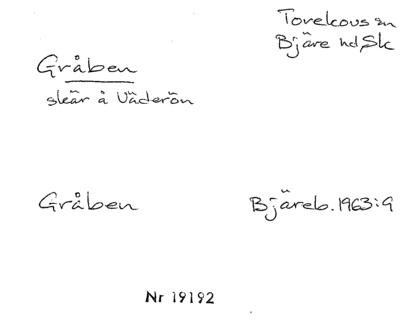 Torekovs sn
Bjäre hd, Sk
Gråben
skär å Väderön
Gråben
Bjäreb. 1963:9
Nr 19192